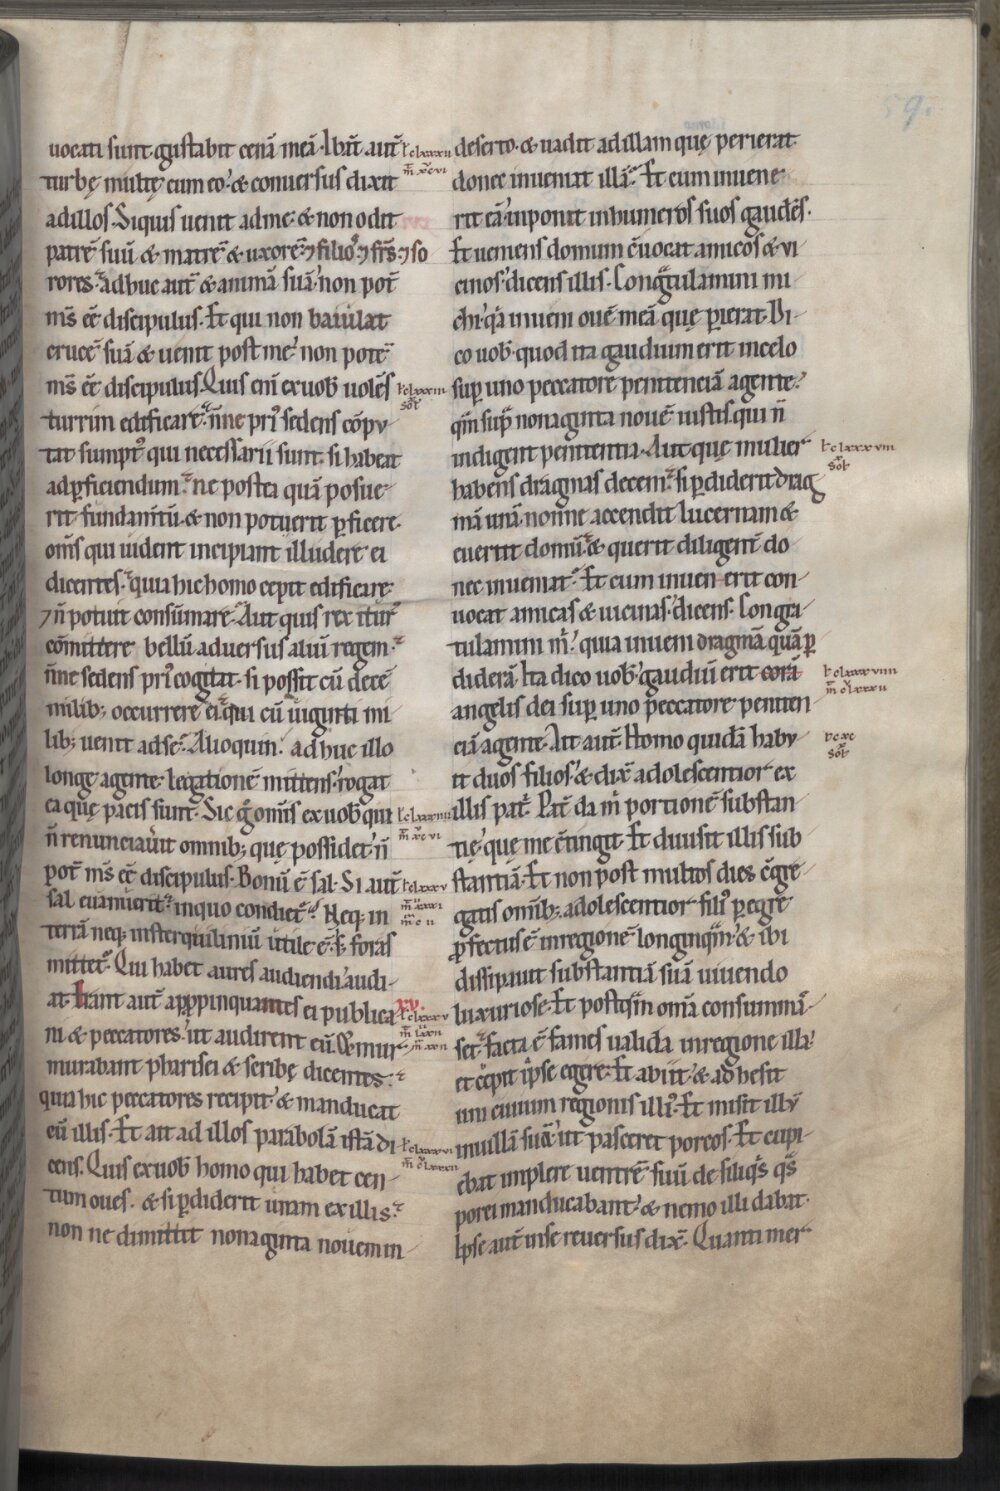 59.
uocati sunt gustabit cenā meā. Ibāt aut̄
turbę multę cum eo. & conuersus dixit
ad illos. Siquis uenit ad me. & non odit
patrē suū & matrē & uxorē. ⁊ filios ⁊ fr̄s. ⁊ so
rores. adhuc aut̄ & animā suā. non pot̄
m̄s ēē discipulus. Et qui non baiulat
crucē suā & uenit post me. non potē
m̄s ēē discipulus. Quis eni ex uob uolēs
turrim edificare. n̄ne pri sedens cōpu
tat sumpt qui necessarii sunt. si habeat
ad ꝑficiendum. ne postea quā posue
rit fundam̄tū. & non potuerit ꝑficere.
om̄s qui uident incipiant illudere ei
dicentes. quia hic homo cepit edificare.
⁊ n̄ potuit consūmare. Aut quis rex itur
cōmittere bellū aduersus aliū regem.
n̄ne sedens pri cogitat. si possit cū decē
milib; occurrere ei qui cū uiginti mi
lib; uenit ad se. Alioquin. adhuc illo
longe agente. legationē mittens. rogat
ea quę pacis sunt. Sic g̊ om̄is ex uob qui
n̄ renunciauit omnib; quę possidet. n̄
pot̄ m̄s ēē discipulus. Bonū ē sal. Si aut̄
sal euanuerit. in quo condiet. Neq; in
terrā neq; in sterquiliniū utile ē. s; foras
mittet. Qui habet aures audiendi. audi
at. Erant aut̄ appropinquantes ei publica
ni & peccatores. ut audirent eū. Et mur
murabant pharisei & scribę dicentes.
quia hic peccatores recipit. & manducat
cū illis. Et ait ad illos parabolā istā di
cens. Quis ex uob homo qui habet cen
tum oues. & si ꝑdiderit unam ex illis.
non ne dimittit nonaginta nouem in
xv.
deserto. & uadit ad illam quę perierat.
donec inueniat illā. Et cum inuene
rit eā. inponit in humeros suos gaudēs.
Et ueniens domum c̄uocat amicos & ui
cinos. dicens illis. Congr̄tulamini mi
chi. q̄a inueni ouē meā quę ꝑierat. Di
co uob. quod ita gaudium erit in cęlo
suꝑ uno peccatore penitenciā agente.
qm̄ suꝑ nonaginta nouē iustis. qui n̄
indigent penitentia. Aut quę mulier
habens dragmas decem. si ꝑdiderit drag
mā unā. nonne accendit lucernam &
euertit domū. & querit diligent do
nec inueniat. Et cum inuen erit con
uocat amicas & uicinas. dicens. Congra
tulamini m̄. quia inueni dragmā quā ꝑ
diderā. Ita dico uob. gaudiū erit corā
angelis dei suꝑ uno peccatore peniten
ciā agente. Ait aut̄. Homo quidā habu
it duos filios. & dix̄ adolescentior ex
illis pat̄. Pat̄ da m̄ portionē substan
tię. quę me c̄tingit. Et diuisit illis sub
stantiā. Et non post multos dies c̄gre
gatis omib; adolescentior fili ꝑegre
ꝓfectus ē in regionē longinqm̄. & ibi
dissipauit substantiā suā uiuendo
luxuriose. Et postqm̄ omā consummā
set. facta ē fames ualida in regione illa.
et c̄pit ipse egere. Et abiit. & adhesit
uni ciuium regionis illi. Et misit illū
in uillā suā. ut pasceret porcos. Et cupi
ebat implere uentrē suū de siliqs qs
porci manducabant. & nemo illi dabat.
Ipse aut̄ in se reuersus dix̄. Quanti mer